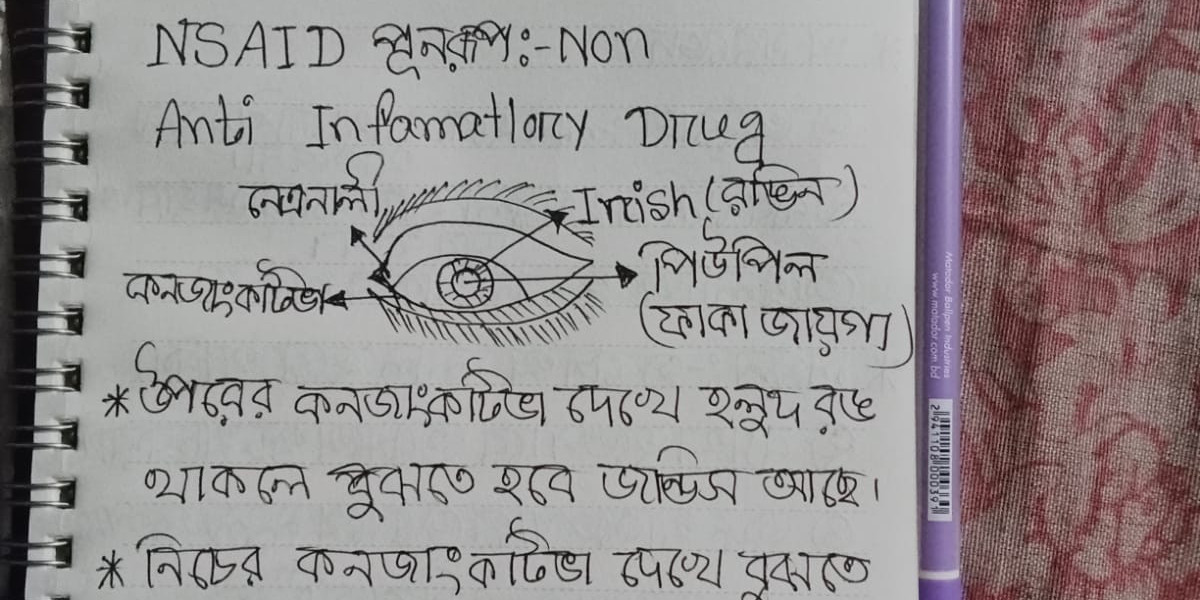 NSAID পূনরূপ:-Non
Anti Infamatlory Drug
নেত্রনালী
Irish (রঙিন)
কনজাংকটিভা
পিউপিল
(ফাকা জায়গা)
* উপরের কনজাংকটিভা দেখে হলুদ রঙ
থাকলে বুঝতে হবে জন্ডিস আছে।
* নিচের কনজাংকটিভা দেখে বুঝতে
Matador Ballpen Industries
www.matador.com.bd